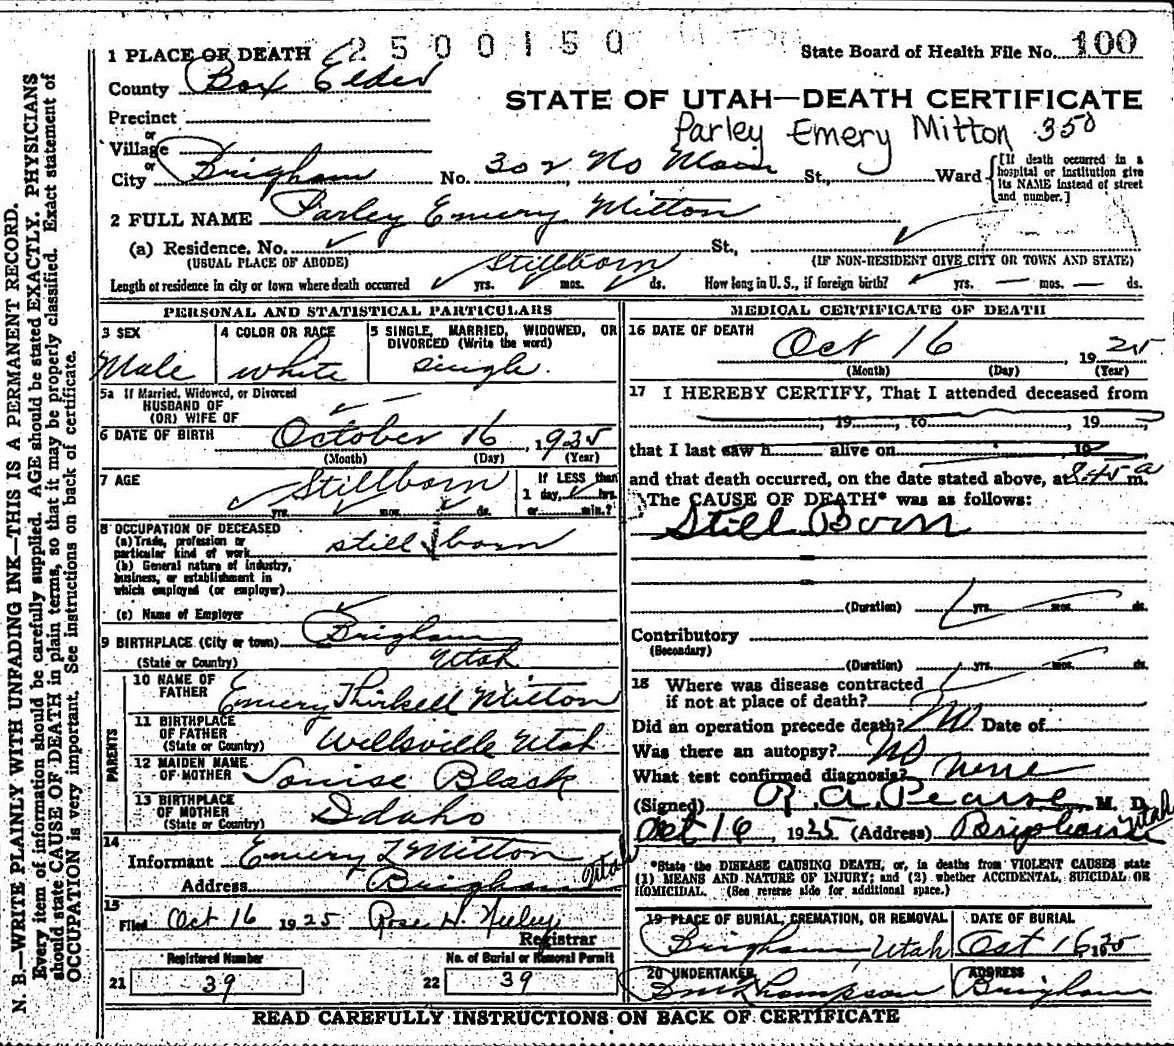 2500150
State Board of Health File No. 100
1 PLACE OF DEATH
County Box Elder
STATE OF UTAH—DEATH CERTIFICATE
Precinct
Parley Emery Mitton 350
or
Village
or
City Brigham No. 302 No Main St., Ward [If death occurred in a hospital or institution give its NAME instead of street and number.]
2 FULL NAME Parley Emery Mitton
(a) Residence. No. St.,
(USUAL PLACE OF ABODE) (IF NON-RESIDENT GIVE CITY OR TOWN AND STATE)
Stillborn
Length of residence in city or town where death occurred yrs. mos. ds. How long in U.S., if foreign birth? yrs. — mos. — ds.
PERSONAL AND STATISTICAL PARTICULARS
3 SEX 4 COLOR OR RACE 5 SINGLE, MARRIED, WIDOWED, OR DIVORCED (Write the word)
Male white single.
5a If Married, Widowed, or Divorced
HUSBAND OF
(OR) WIFE OF
6 DATE OF BIRTH October 16, 1925
(Month) (Day) (Year)
7 AGE Stillborn If LESS than
1 day, hrs.
yrs. mos. ds. or min.?
8 OCCUPATION OF DECEASED
(a) Trade, profession or particular kind of work still born
(b) General nature of industry, business, or establishment in which employed (or employer)
(c) Name of Employer
9 BIRTHPLACE (City or town) Brigham
(State or Country) Utah
PARENTS
10 NAME OF FATHER Emery Thirkell Mitton
11 BIRTHPLACE OF FATHER (State or Country) Wellsville Utah
12 MAIDEN NAME OF MOTHER Louise Black
13 BIRTHPLACE OF MOTHER (State or Country) Idaho
14
Informant Emery T Mitton
Address Brigham Utah
15
Filed Oct 16 1925 Rose H. Neeley
Registrar
Registered Number No. of Burial or Removal Permit
21 39 22 39
MEDICAL CERTIFICATE OF DEATH
16 DATE OF DEATH
Oct 16, 1925
(Month) (Day) (Year)
17 I HEREBY CERTIFY, That I attended deceased from
, 19 , to , 19 ,
that I last saw h alive on 19
and that death occurred, on the date stated above, at 8:45 a m.
The CAUSE OF DEATH* was as follows:
Still Born
(Duration) yrs. mos. ds.
Contributory
(Secondary)
(Duration) yrs. mos. ds.
18 Where was disease contracted
if not at place of death?
Did an operation precede death? No Date of
Was there an autopsy? No
What test confirmed diagnosis? None
(Signed) R. A. Pearse, M. D.
Oct 16, 1925 (Address) Brigham Utah
*State the DISEASE CAUSING DEATH, or, in deaths from VIOLENT CAUSES state
(1) MEANS AND NATURE OF INJURY; and (2) whether ACCIDENTAL, SUICIDAL OR
HOMICIDAL. (See reverse side for additional space.)
19 PLACE OF BURIAL, CREMATION, OR REMOVAL DATE OF BURIAL
Brigham Utah Oct 16 1925
20 UNDERTAKER ADDRESS
Thompson Brigham
READ CAREFULLY INSTRUCTIONS ON BACK OF CERTIFICATE
N. B.—WRITE PLAINLY WITH UNFADING INK—THIS IS A PERMANENT RECORD.
Every item of information should be carefully supplied. AGE should be stated EXACTLY. PHYSICIANS
should state CAUSE OF DEATH in plain terms, so that it may be properly classified. Exact statement of
OCCUPATION is very important. See instructions on back of certificate.